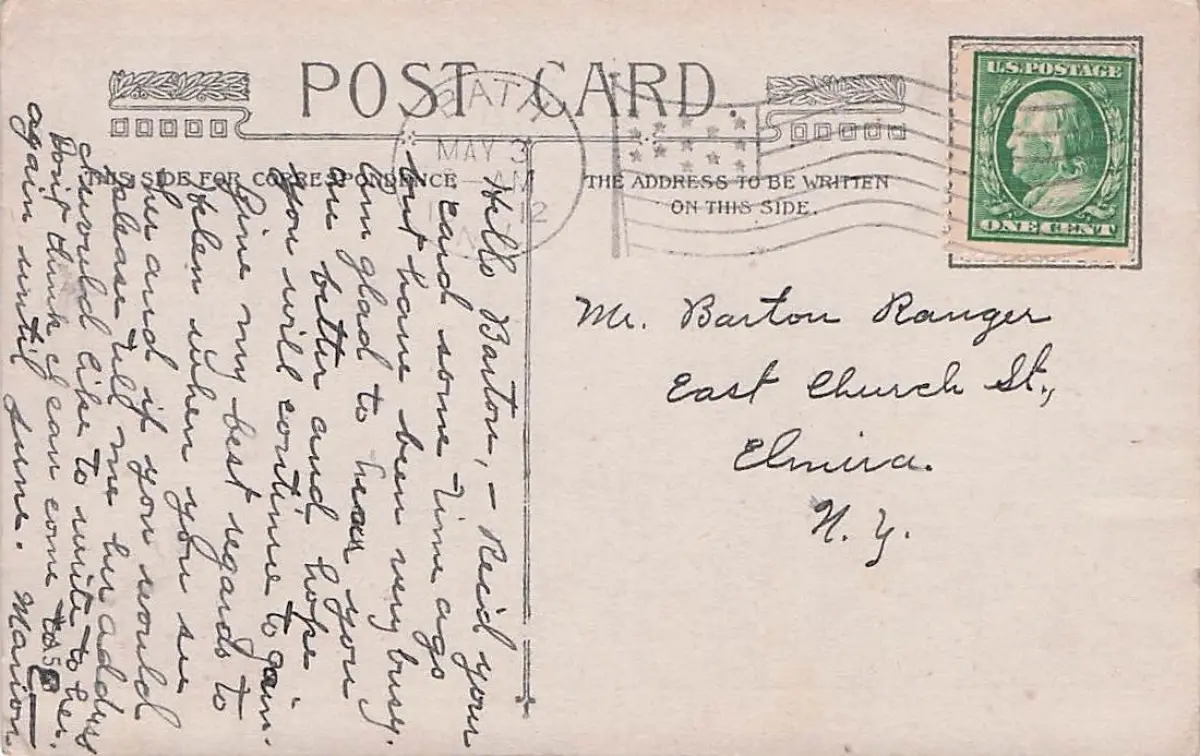 POST CARD.
THIS SIDE FOR CORRESPONDENCE.
THE ADDRESS TO BE WRITTEN
ON THIS SIDE.
U.S. POSTAGE
ONE CENT
MAY 3
AM
12
N.Y.
Hello Barton, - Rec'd your
card some time ago
but have been very busy.
Am glad to hear you
are better and hope
you will continue to gain.
Give my best regards to
Helen when you see
her and if you would
please tell me her address
I would like to write to her.
Don't think I can come to
again until June. Marion
Mr. Barton Ranger
East Church St.,
Elmira.
N. Y.